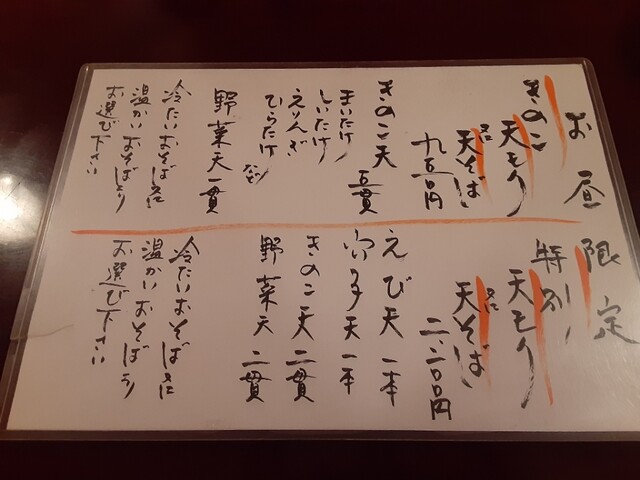 お昼
きのこ
天もり
又は
天そば
九五〇円
きのこ天 五貫
まいたけ
しいたけ
えりんぎ
ひらたけ など
野菜天 一貫
冷たいおそば又は
温かいおそばより
お選び下さい
限定
特別
天もり
又は
天そば
二、二〇〇円
えび天 一本
天一本
きのこ天 二貫
野菜天 二貫
冷たいおそば又は
温かいおそばより
お選び下さい